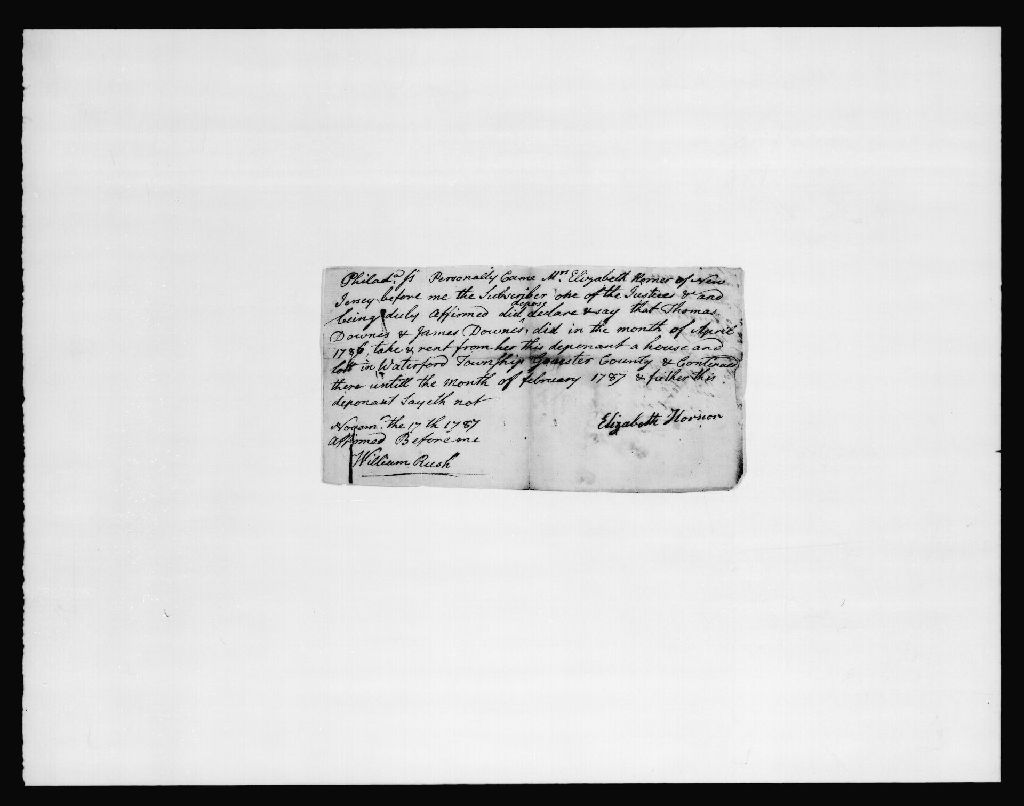 Philad.ª ss Personally Came Mrs Elizabeth Horner of New
Jersey before me the Subscriber one of the Justices & and
being duly Affirmed did depose declare & say that Thomas
Downes & James Downes, did in the month of April
1786 take & rent from her this deponant a house and
lott in Waterford Township Gloester County & Contenued
there untill the month of february 1787 & futher this
deponant Sayeth not
Elizabeth Hornor
Novem.r the 17th 1787
Affirmed Before me
William Rush